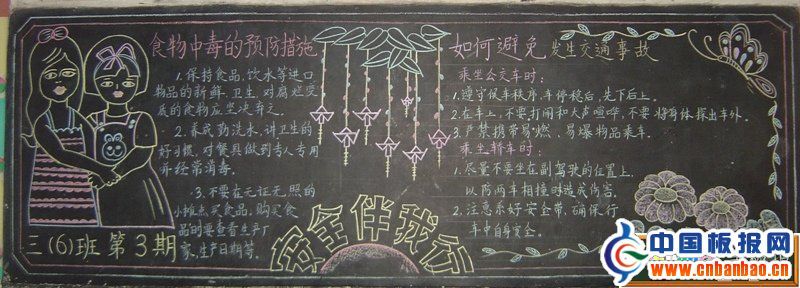 食物中毒的预防措施
1.保持食品,饮水等进口
物品的新鲜,卫生,对腐烂变
质的食物应坚决弃之。
2.养成勤洗水,讲卫生的
好习惯,对餐具做到专人专用
并经常消毒。
3.不要在无证无照的
小摊点买食品,购买食
品时要查看生产厂
家,生产日期等。
三(6)班 第3期
安全伴我行
如何避免发生交通事故
乘坐公交车时:
1.遵守候车秩序,车停稳后,先下后上。
2.在车上,不要打闹和大声喧哗,不要将身体探出车外。
3.严禁携带易燃、易爆物品乘车。
乘坐轿车时:
1.尽量不要坐在副驾驶的位置上,
以防两车相撞时造成伤害。
2.注意系好安全带,确保行
车中自身安全。
中国板报网
www.cnbanbao.cn